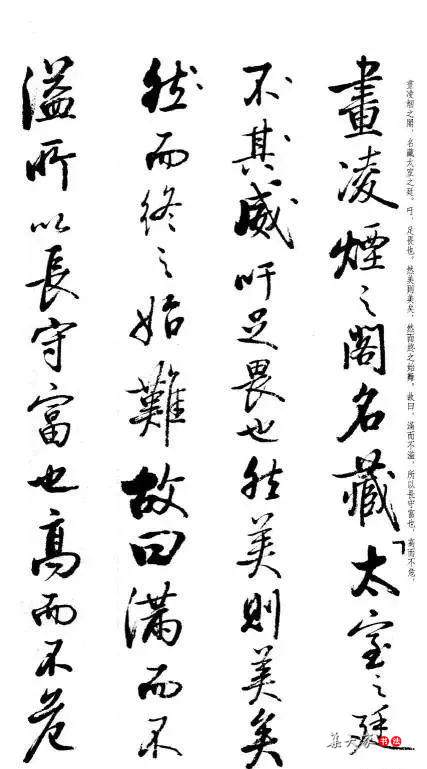 書凌烟之閣，名藏太室之廷。吁，足畏也。然美則美矣，然而終之始難。故曰，滿而不溢，所以長守富也，高而不危，
畫凌煙之閣名藏太室之廷
不其威吁足畏也然美則美矣
然而終之始難故曰滿而不
溢所以長守富也高而不危
书法